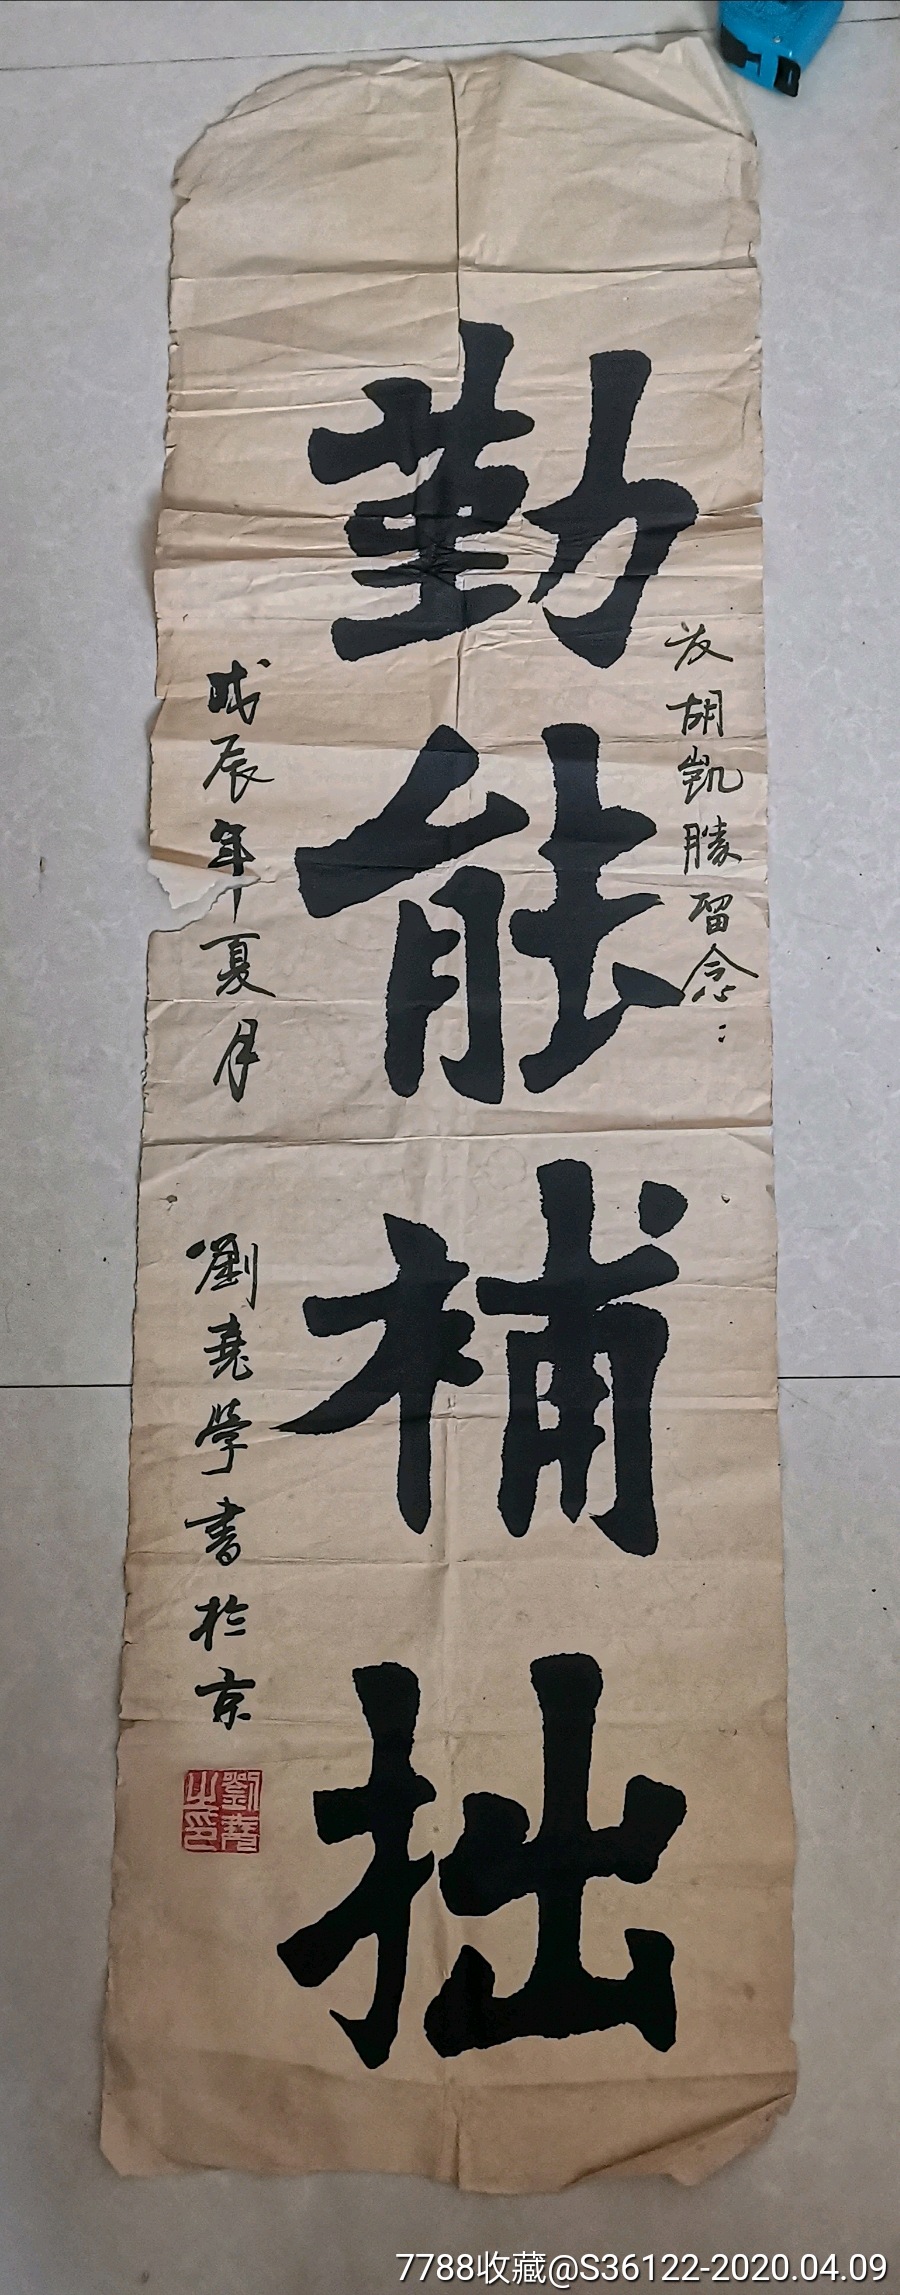 友胡凯勝留念：
勤能補拙
戊辰年夏月
劉堯學書於京
7788收藏@S36122-2020.04.09